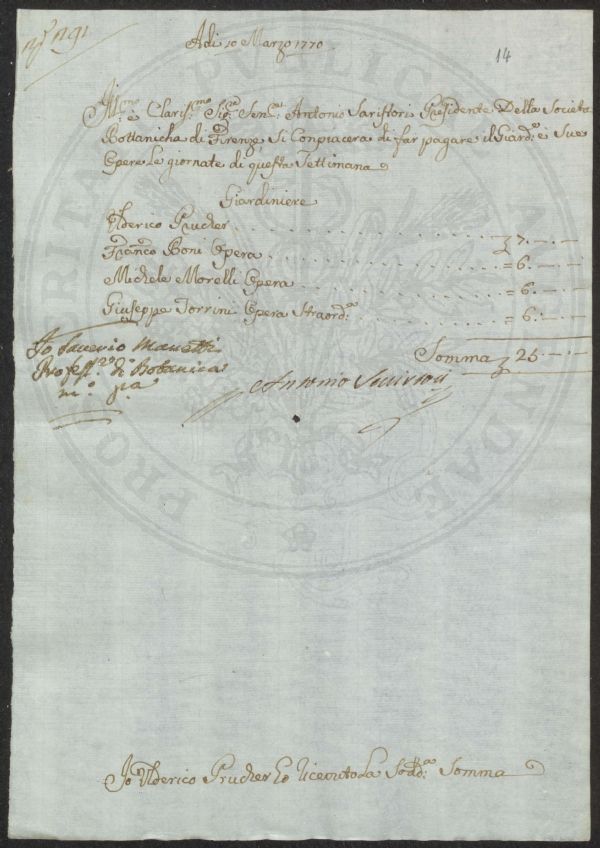 N.º 191
Adi 10 Marzo 1770
14
Ill:mo e Claris:mo Sig:re Sen:re Antonio Saristori Presidente Della Societa
Bottanicha di Firenze Si Conpiacera di far pagare il Giard:e e Sue
Opere Le giornate di questa Settimana
Giardiniere
Ulderico Prucher . . . . . 7.—.—
Fran:co Boni Opera . . . . . = 6.—.—
Michele Morelli Opera . . . . . = 6.—.—
Giuseppe Torrini Opera Straord:a . . . . . = 6.—.—
Somma 25.—.—
Io Saverio Manetti
Profess:re di Botanica
m:o p:a
Antonio Serristori
Io Ulderico Prucher Ho Riceuto La Sodd:a Somma
PRO PUBLICA